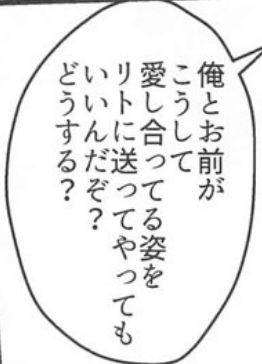 俺とお前が
こうして
愛し合ってる姿を
リトに送ってやっても
いいんだぞ?
どうする?